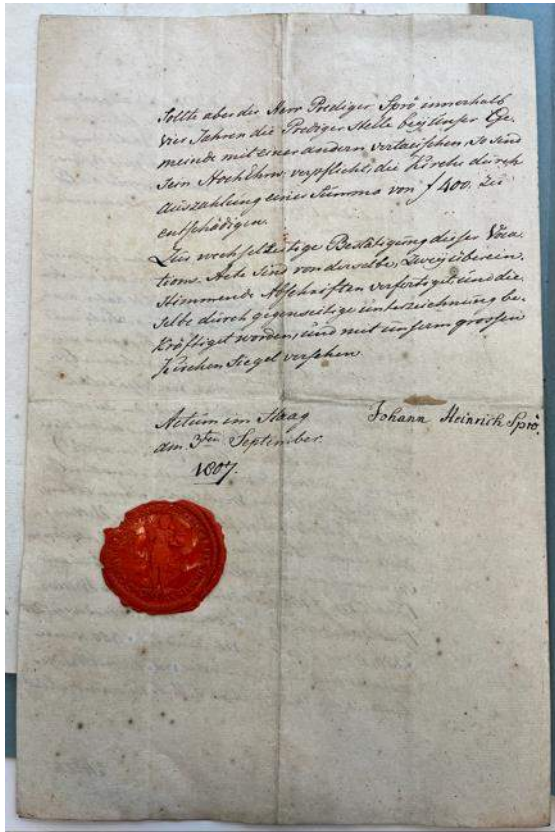 Sollte aber der Herr Prediger Sprö innerhalb
vier Jahren die Prediger Stelle bey unser Ge-
meinde mit einer andern vertauschen, So sind
Sein Hochehrw. verpflicht, die Kirche durch
Auszahlung einer Summa von f 400. zu
entschädigen.
Zur wechselseitige Bestätigung dieser Voca-
tions-Acte sind von derselbe, zwey überein-
stimmende Abschriften verfertiget, und die-
selbe durch gegenseitige unterzeichnung be-
kräftiget worden, und mit unserm grossen
Kirchen Siegel versehen.
Actum im Haag
am 3ten September.
1807.
Johann Heinrich Sprö.